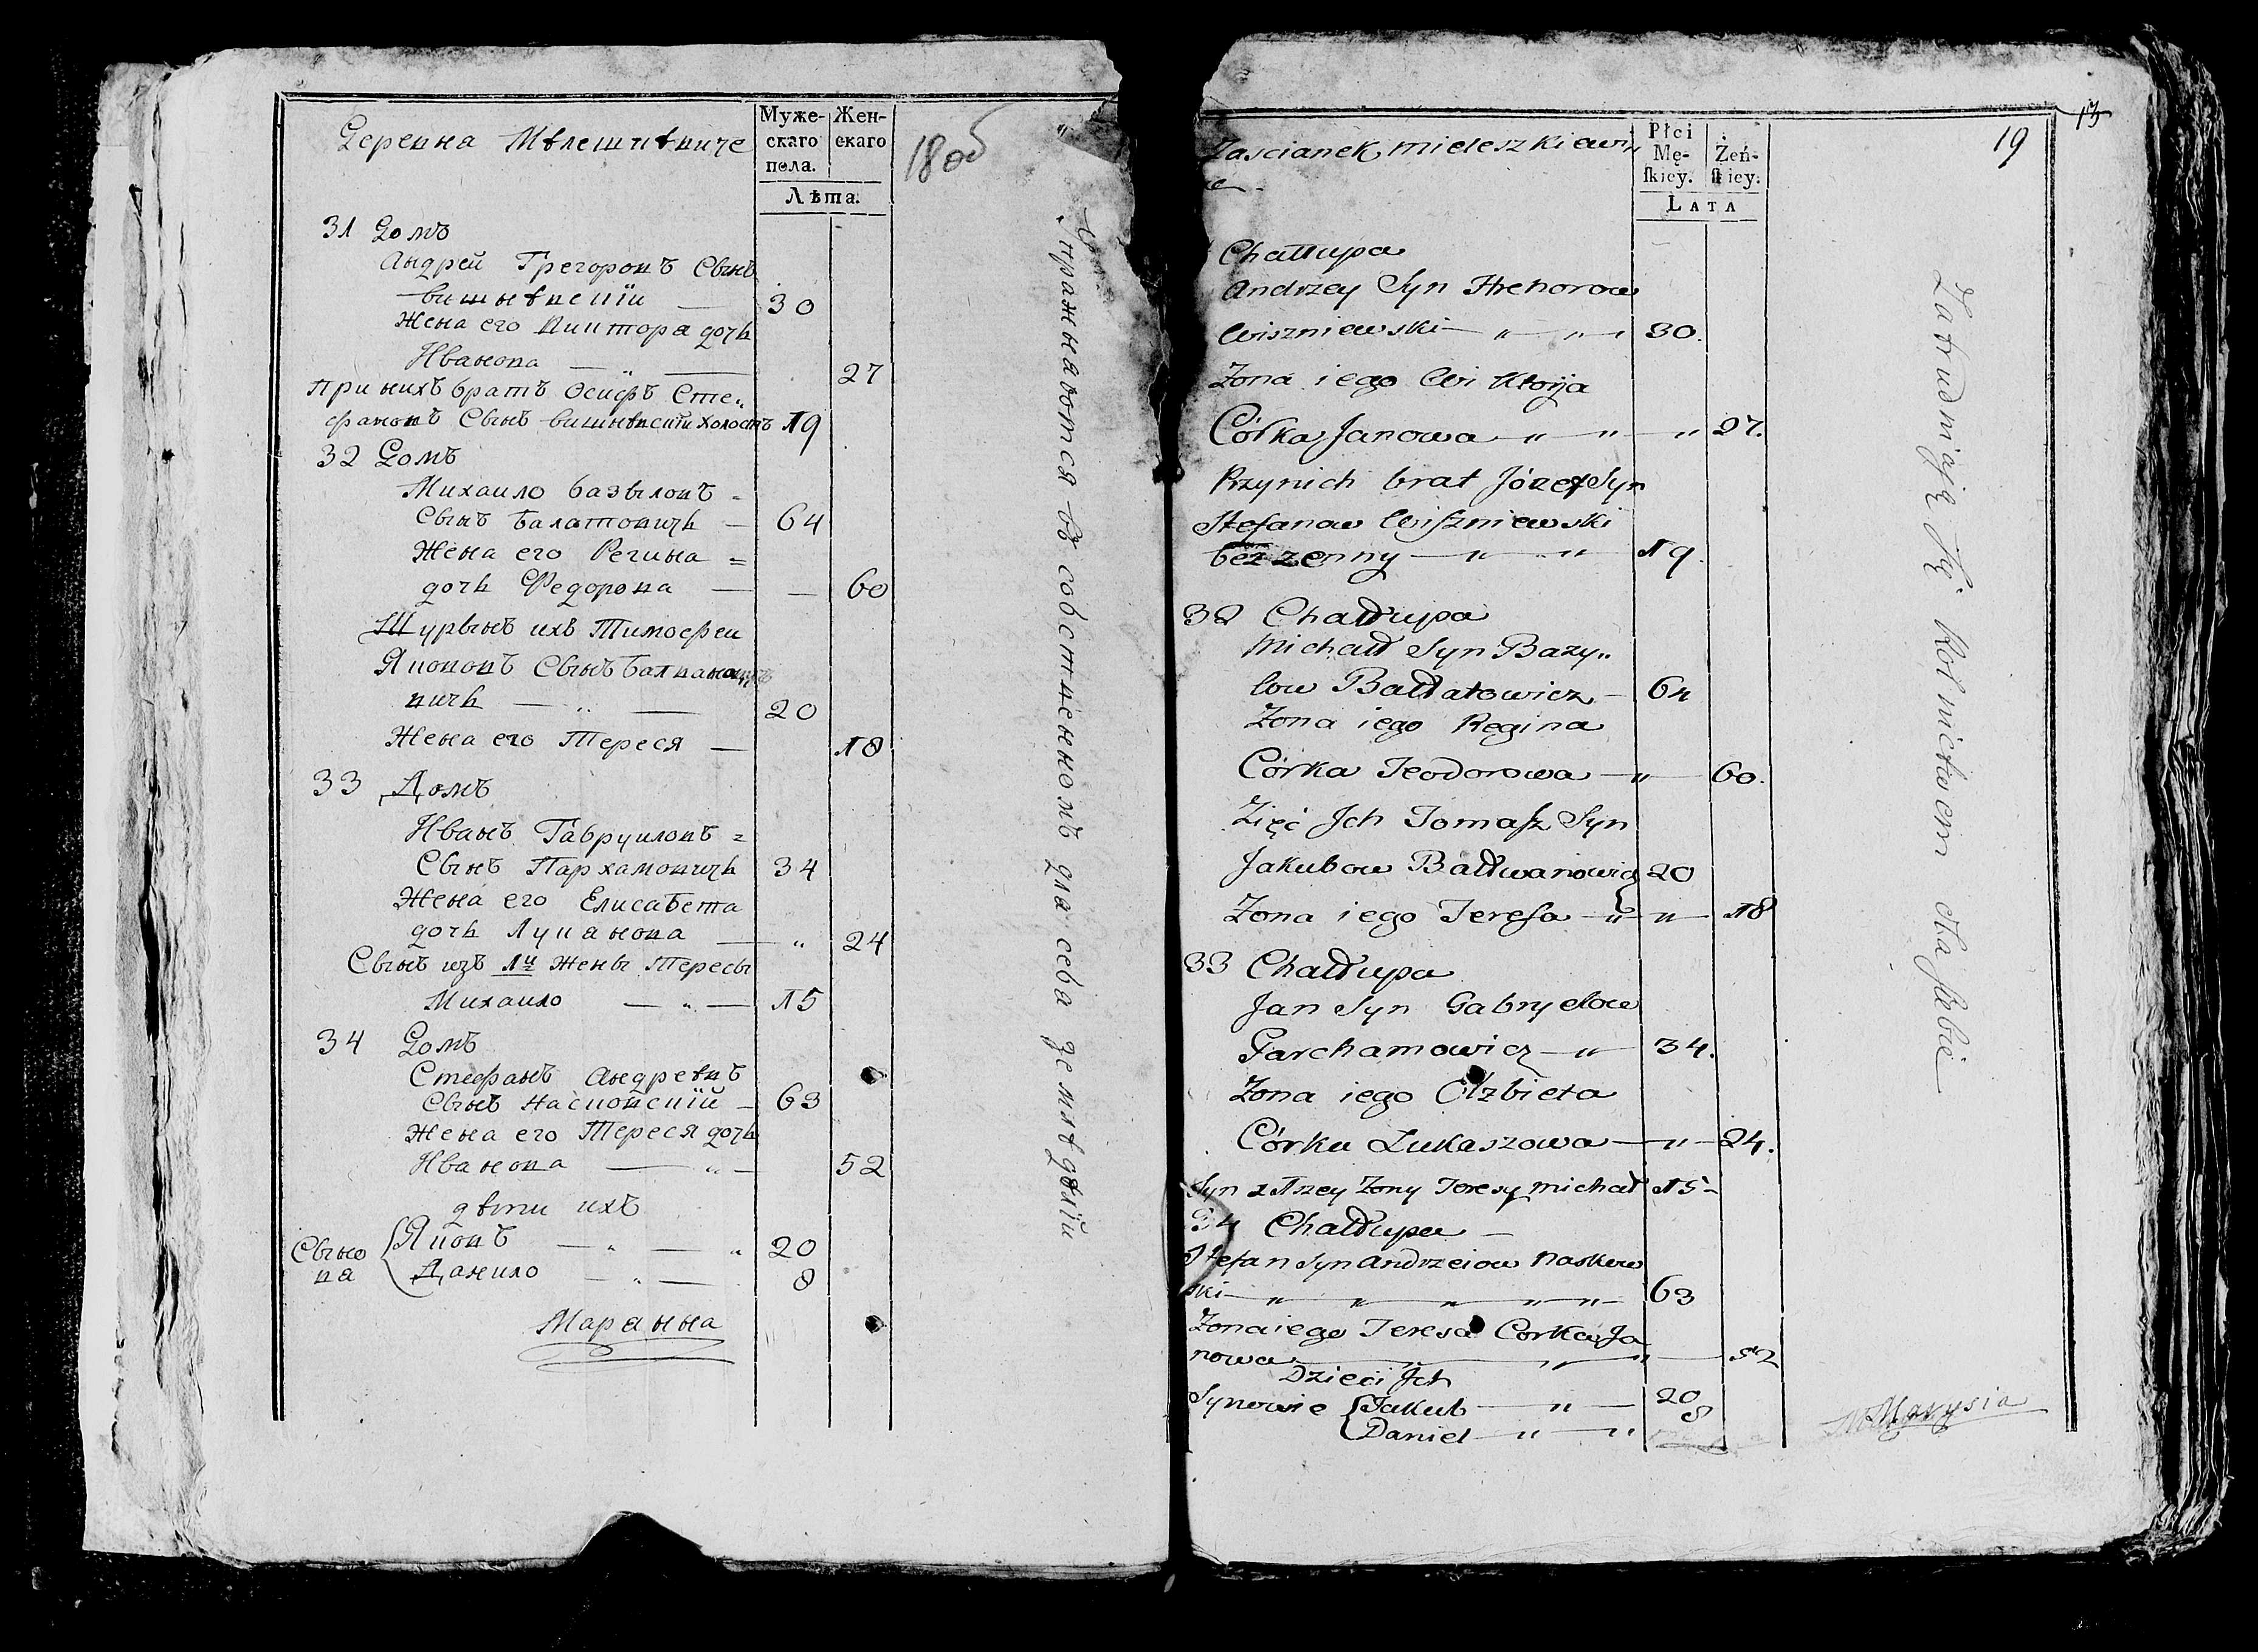 Муже-
скаго
пола.
Жен-
скаго
Лѣта.
18 об
31 Домъ
Андрей Грегоровъ Сынъ
вишнѣвскiй — 30
Жена его Виктора дочь
Ивановa — „ — 27
при нихъ братъ Осифъ Сте„
фановъ Сынъ вишнѣвскiй холостъ 19
32 Домъ
Михаило базылевъ -
Сынъ балатовичь — 64
Жена его Регина =
дочь Федорова — — 60
Шурынъ ихъ Тимофеи
Якововъ Сынъ балвано
вичь — „ — 20
Жена его Тереся — 18
33 Домъ
Иванъ Гавруиловъ =
Сынъ Пархамовичь 34
Жена его Елисабета
дочь Луцанова — „ 24
Сынъ изъ 1й Жены Тересы
Михаило — „ — 15
34 Домъ
Стефанъ Андреѣвъ
Сынъ Насковскiй — 63
Жена его Тереся дочь
Иванова — „ — 52
дѣти ихъ
Сыно
ва
Яковъ — „ — „ 20
Данило — „ — 8
упражняются въ собственномъ для себа землѣдѣлiи
19
13
Zascianek mieleszkiewi
cze
Płci
Mę-
ſkiey.
Żeń-
ſkiey.
LATA
Chałłupa
Andrzey Syn Hrehorow
Wiszniewski — „ — „ — 30.
Zona iego Wiktorÿa
Córka Janowa — „ — „ — „ 27.
Przynich brat Józef Syn
Stefanow Wiszniewski
bezzenny — „ — „ 19.
32 Chałłupa
Michałł Syn Bazy„
low Bałłatowicz — 64
Zona iego Regina
Córka Teodorowa — „ — 60.
Zięć Jch Tomaſz Syn
Jakubow Bałłwanowicz 20
Zona iego Tereſa — „ — „ — 18
33 Chałłupa
Jan Syn Gabryelow
Parchamowicz — „ — 34.
Zona iego Elzbieta
Córka Łukaszowa — „ — 24.
Syn z 1szey Zony Teresy Michał 15 -
34 Chałłupa —
Stefan Syn Andrzeiow Naskow
ski — „ — „ — „ — „ — „ — 63
Zona iego Teresa Corka Ja
nowa — „ — „ — 52
Dzieci Jch
Synowie
Jakub — „ — 20
Daniel — „ — „ 8
Zatrudniaią się Rolnictwem dla siebie